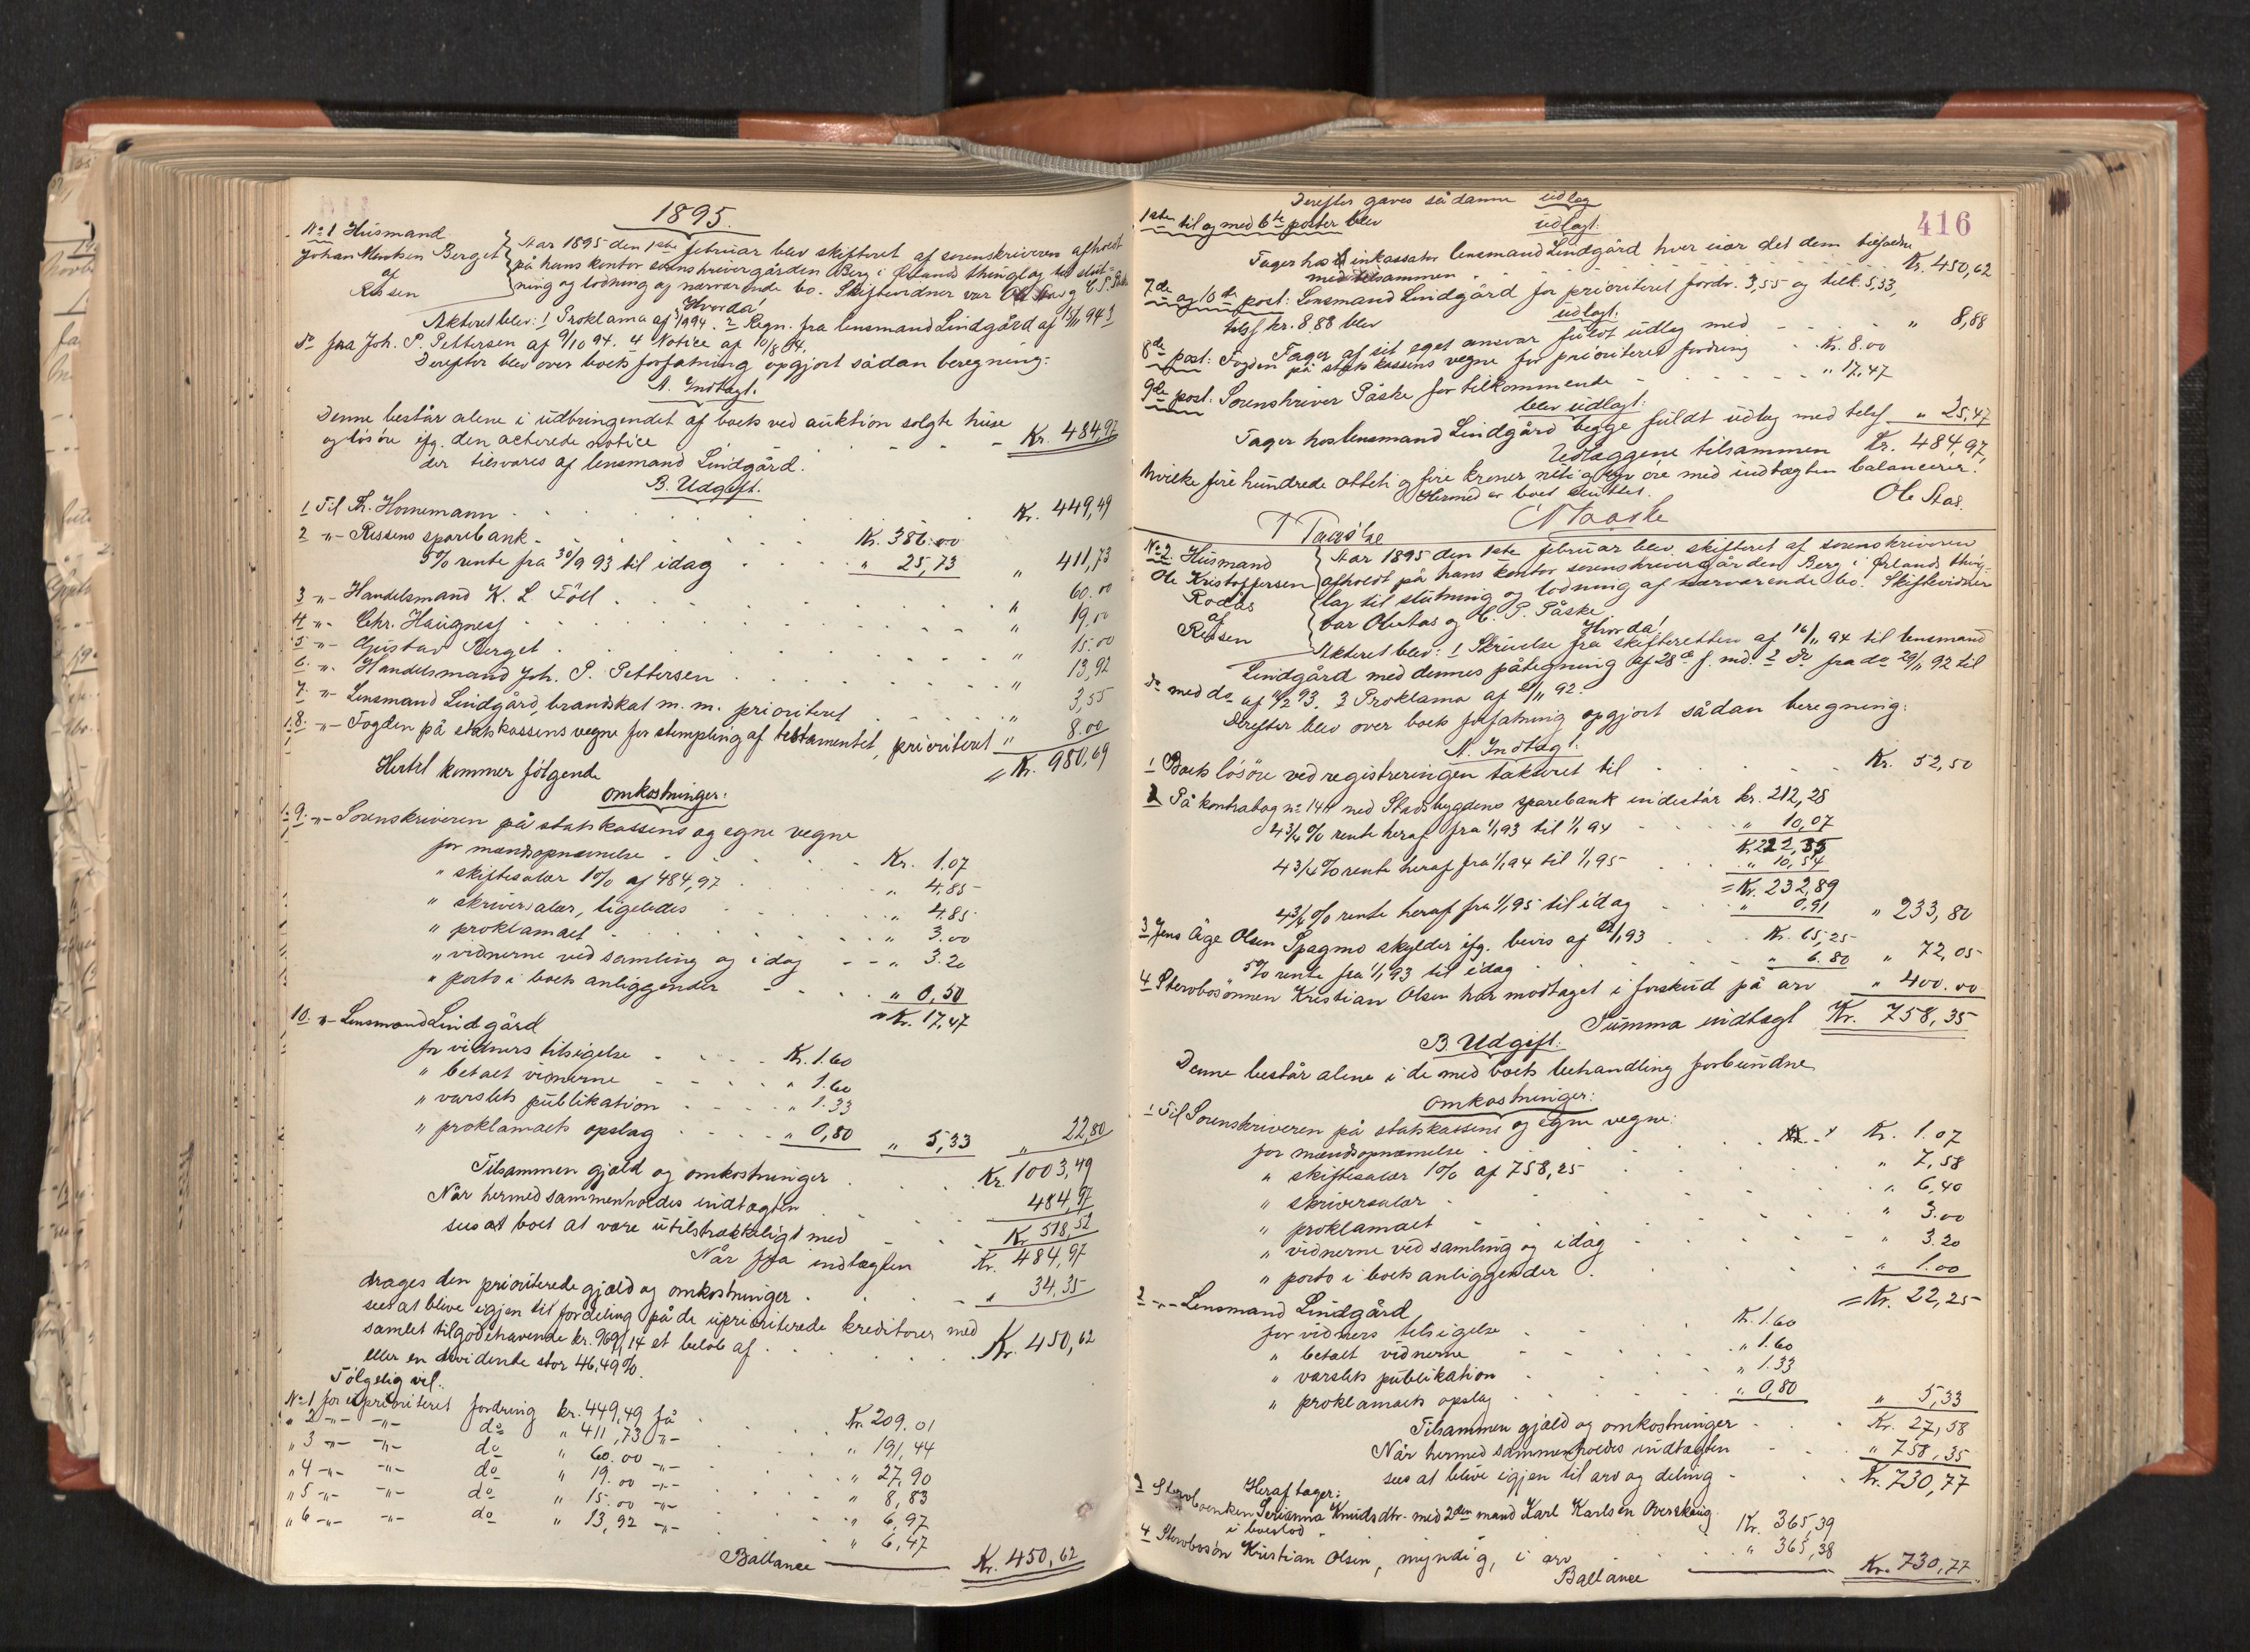 1895.
No 1 Husmand
Johan Berget
af
Rissen
Aar 1895 den 1ste februar blev skifteret af sorenskriveren afholdt
på hans kontor sorenskrivergården Berg i Ørlands thinglag til slut-
ning og lodning af nærværende bo. Skiftevidner var Ole Stas og C. P. Påske
Hvorda!
Akteret blev: 1 Proklama af 1894. 2 Regn. fra lensmand Lindgård af 15/11 94 3
do fra Joh. P. Pettersen af 9/10 94. 4 Notice af 10/8 94.
Derefter blev over boets forfatning opgjort sådan beregning:
A. Indtægt.
Denne består alene i udbringendet af boets ved auktion solgte huse
og løsøre ifg. den acterede notice - Kr. 484,97
der tilsvares af lensmand Lindgård.
B. Udgift.
1 Til Th. Hornemann Kr. 449,49
2 -"- Rissens sparebank Kr. 386.00
5% rente fra 30/9 93 til idag " 25,73 " 411,73
3 -"- Handelsmand K. L. Föll " 60.00
4 -"- Chr. Haugness " 19.00
5 -"- Gustav Berget " 15.00
6 -"- Handelsmand Joh. P. Pettersen " 13,92
7 -"- Lensmand Lindgård, brandskat m. m. prioriteret " 3,55
8 -"- Fogden på statskassens vegne for stempling af testamentet, prioriteret " 8.00
= Kr. 980,69
Hertil kommer følgende
omkostninger:
9 -"- Sorenskriveren på statskassens og egne vegne
for mandsopnævnelse Kr. 1.07
" skiftesalær 1% af 484,97 " 4.85
" skriversalær, ligeledes " 4.85
" proklamaet " 3.00
" vidnerne ved samling og idag " 3.20
" porto i boets anliggender " 0,50
= Kr. 17,47
10 -"- Lensmand Lindgård
for vidners tilsigelse Kr. 1.60
" betalt vidnerne " 1.60
" varslets publikation " 1.33
" proklamaets opslag " 0,80 " 5,33 " 22,80
Tilsammen gjæld og omkostninger Kr. 1003,49
Når hermed sammenholdes indtægten 484,97
sees at boet at være utilstrækkeligt med Kr. 518,52
Når fra indtægten Kr. 484,97
drages den prioriterede gjæld og omkostninger " 34,35
sees at blive igjen til fordeling på de uprioriterede kreditorer med
samlet tilgodehavende kr. 969,14 et beløb af Kr. 450,62
eller en dividende stor 46,49%.
Følgelig vil:
No 1 for uprioriteret fordring kr. 449,49 få Kr. 209.01
" 2 -"- -"- do " 411,73 -"- " 191,44
" 3 -"- -"- do " 60.00 -"- " 27,90
" 4 -"- -"- do " 19.00 -"- " 8,83
" 5 -"- -"- do " 15.00 -"- " 6,97
" 6 -"- -"- do " 13,92 -"- " 6,47
Ballance Kr. 450,62
416
Derefter gaves sådanne udlæg
1ste til og med 6te poster blev
udlagt:
Tager hos inkassator lensmand Lindgård hver især det dem tilfaldne
med tilsammen Kr. 450,62
7de og 10de post: Lensmand Lindgård for prioriteret fordr. 3,55 og tilk. 5,33,
tils kr. 8,88 blev
udlagt.
Tager af sit eget ansvar fuldt udlæg med " 8,88
8de post: Fogden på statskassens vegne for prioriteret fordring Kr. 8.00
9de post: Sorenskriver Påske for tilkommende " 17,47
blev udlagt:
Tager hos lensmand Lindgård begge fuldt udlæg med tils " 25,47
Udlæggene tilsammen Kr. 484,97,
hvilke fire hundrede otteti og fire kroner niti og syv øre med indtægten balancerer.
Hermed er boet sluttet.
Ole Stas.
Paaske
No 2. Husmand
Ole Kristoffersen
Rodås
af
Rissen
Aar 1895 den 1ste februar blev skifteret af sorenskriveren
afholdt på hans kontor sorenskrivergården Berg i Ørlands thing-
lag til slutning og lodning af nærværende bo. Skiftevidner
var Ole Stas og C. P. Påske
Hvorda!
Akteret blev: 1 Skrivelse fra skifteretten af 16/11 94 til lensmand
Lindgård med dennes påtegning af 28de f. md. 2 do fra do 29/11 92 til
do med do af 11/2 93. 3 Proklama af 21/11 92.
Derefter blev over boets forfatning opgjort sådan beregning:
A. Indtægt:
1 Boets løsøre ved registreringen takseret til Kr. 52,50
2 På kontrabog no 144 ned Stadsbygdens sparebank indestår kr. 212,28
4 3/4 % rente heraf fra 1/1 93 til 1/1 94 " 10,07
K. 222,35
4 3/4 % rente heraf fra 1/1 94 til 1/1 95 " 10,54
= Kr. 232,89
4 3/4 % rente heraf fra 1/1 95 til idag " 0,91 " 233,80
3 Jens Åge Olsen Spagmo skylder ifg. bevis af 93 Kr. 65,25
5% rente fra 1/1 93 til idag " 6.80 " 72,05
4 Stervbosønnen Kristian Olsen har modtaget i forskud på arv " 400.00
Summa indtægt Kr. 758,35
B. Udgift.
Denne består alene i de med boets behandling forbundne
omkostninger:
1 Til Sorenskriveren på statskassens og egne vegne:
for mandsopnævnelse Kr. 1.07
" skiftesalær 1% af 758,25 " 7,58
" skriversalær " 6,40
" proklamaet " 3.00
" vidnerne ved samling og idag " 3.20
" porto i boets anliggender " 1.00
= Kr. 22,25
2 -"- Lensmand Lindgård
for vidners tilsigelse Kr. 1.60
" betalt vidnerne " 1.60
" varslets publikation " 1.33
" proklamaets opslag " 0,80 " 5,33
Tilsammen gjæld og omkostninger Kr. 27,58
Når hermed sammenholdes indtægten " 758,35
sees at blive igjen til arv og deling Kr. 730,77
Heraf tager:
3 Stervboenken Serianna Knudsdtr. med 2den mand Karl Karlsen Overskaug
i boeslod Kr. 365,39
4 Stervbosøn Kristian Olsen, myndig, i arv " 365,38
Ballance Kr. 730,77